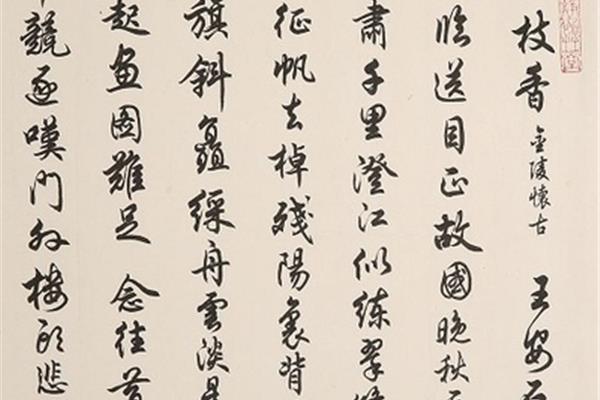 枝香 金陵懷古 王安石
臨送目正故國晚秋
肅千里澄江似練翠
征帆去棹殘陽裏背
旗斜矗綵舟雲淡星
起畫圖難足 念往昔
競逐嘆門外樓頭悲